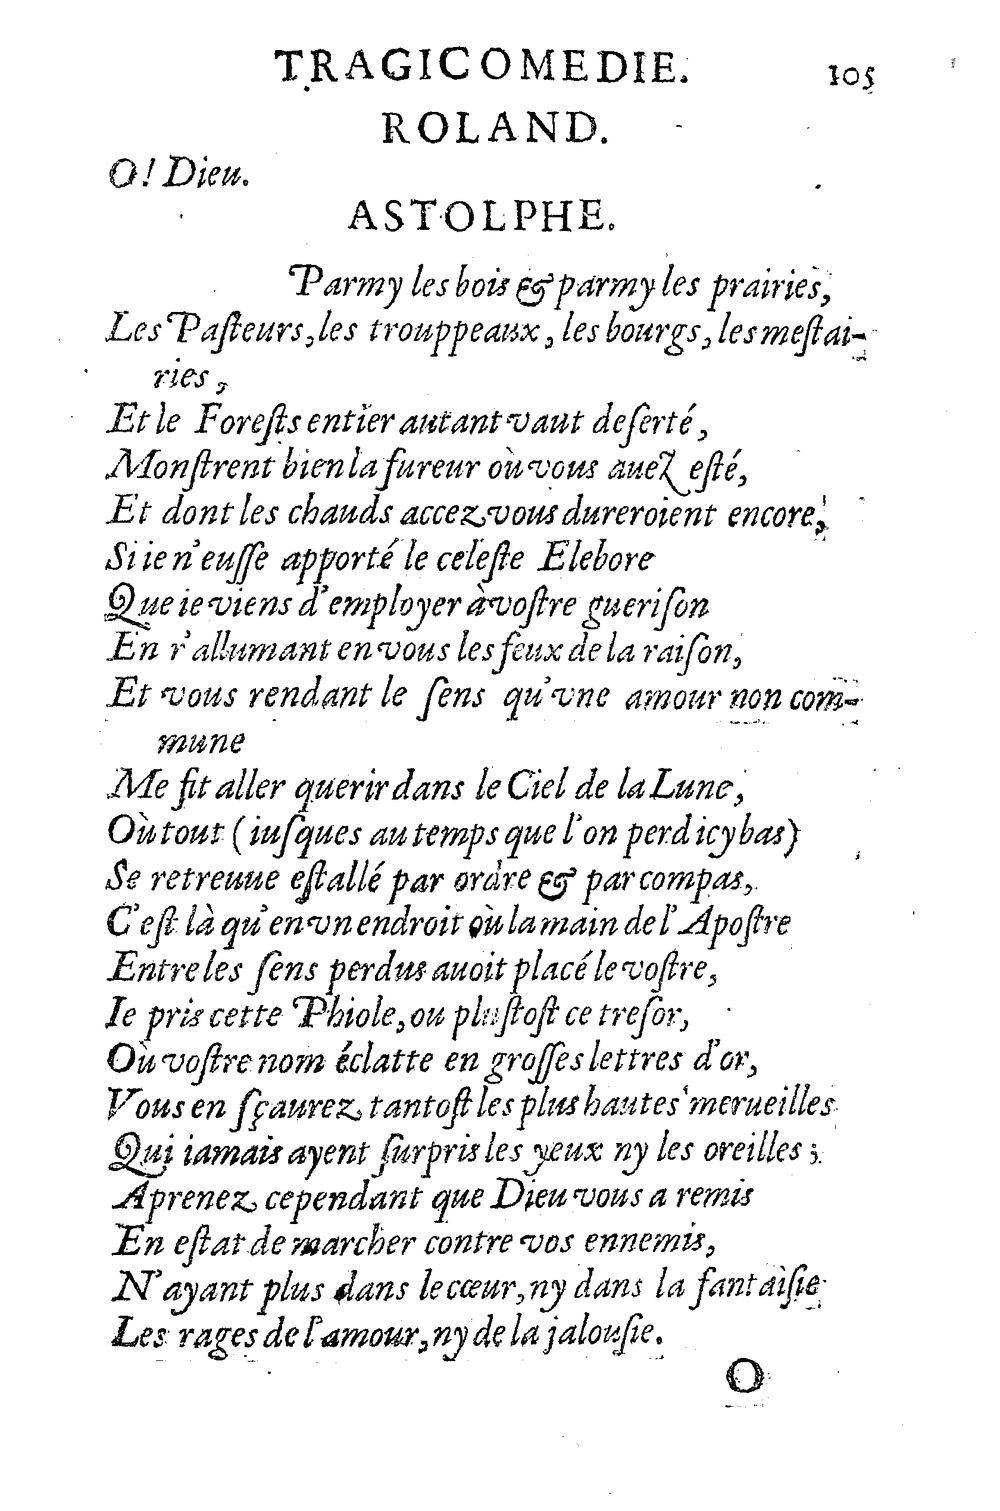 TRAGICOMEDIE. 105
ROLAND.
O! Dieu.
ASTOLPHE.
Parmy les bois & parmy les prairies,
Les Pasteurs, les trouppeaux, les bourgs, les mestai-
ries,
Et le Forests entier autant vaut deserté,
Monstrent bien la fureur où vous auez esté,
Et dont les chauds accez vous dureroient encore,
Si ie n'eusse apporté le celeste Elebore
Que ie viens d'employer à vostre guerison
En r'allumant en vous les feux de la raison,
Et vous rendant le sens qu'vne amour non com-
mune
Me fit aller querir dans le Ciel de la Lune,
Où tout (iusques au temps que l'on perd icy bas)
Se retreuue estallé par ordre & par compas,
C'est là qu'en vn endroit où la main de l'Apostre
Entre les sens perdus auoit placé le vostre,
Ie pris cette Phiole, ou plustost ce tresor,
Où vostre nom éclatte en grosses lettres d'or,
Vous en sçaurez tantost les plus hautes merueilles
Qui iamais ayent surpris les yeux ny les oreilles;
Aprenez cependant que Dieu vous a remis
En estat de marcher contre vos ennemis,
N'ayant plus dans le cœur, ny dans la fantaisie
Les rages de l'amour, ny de la jalousie.
O